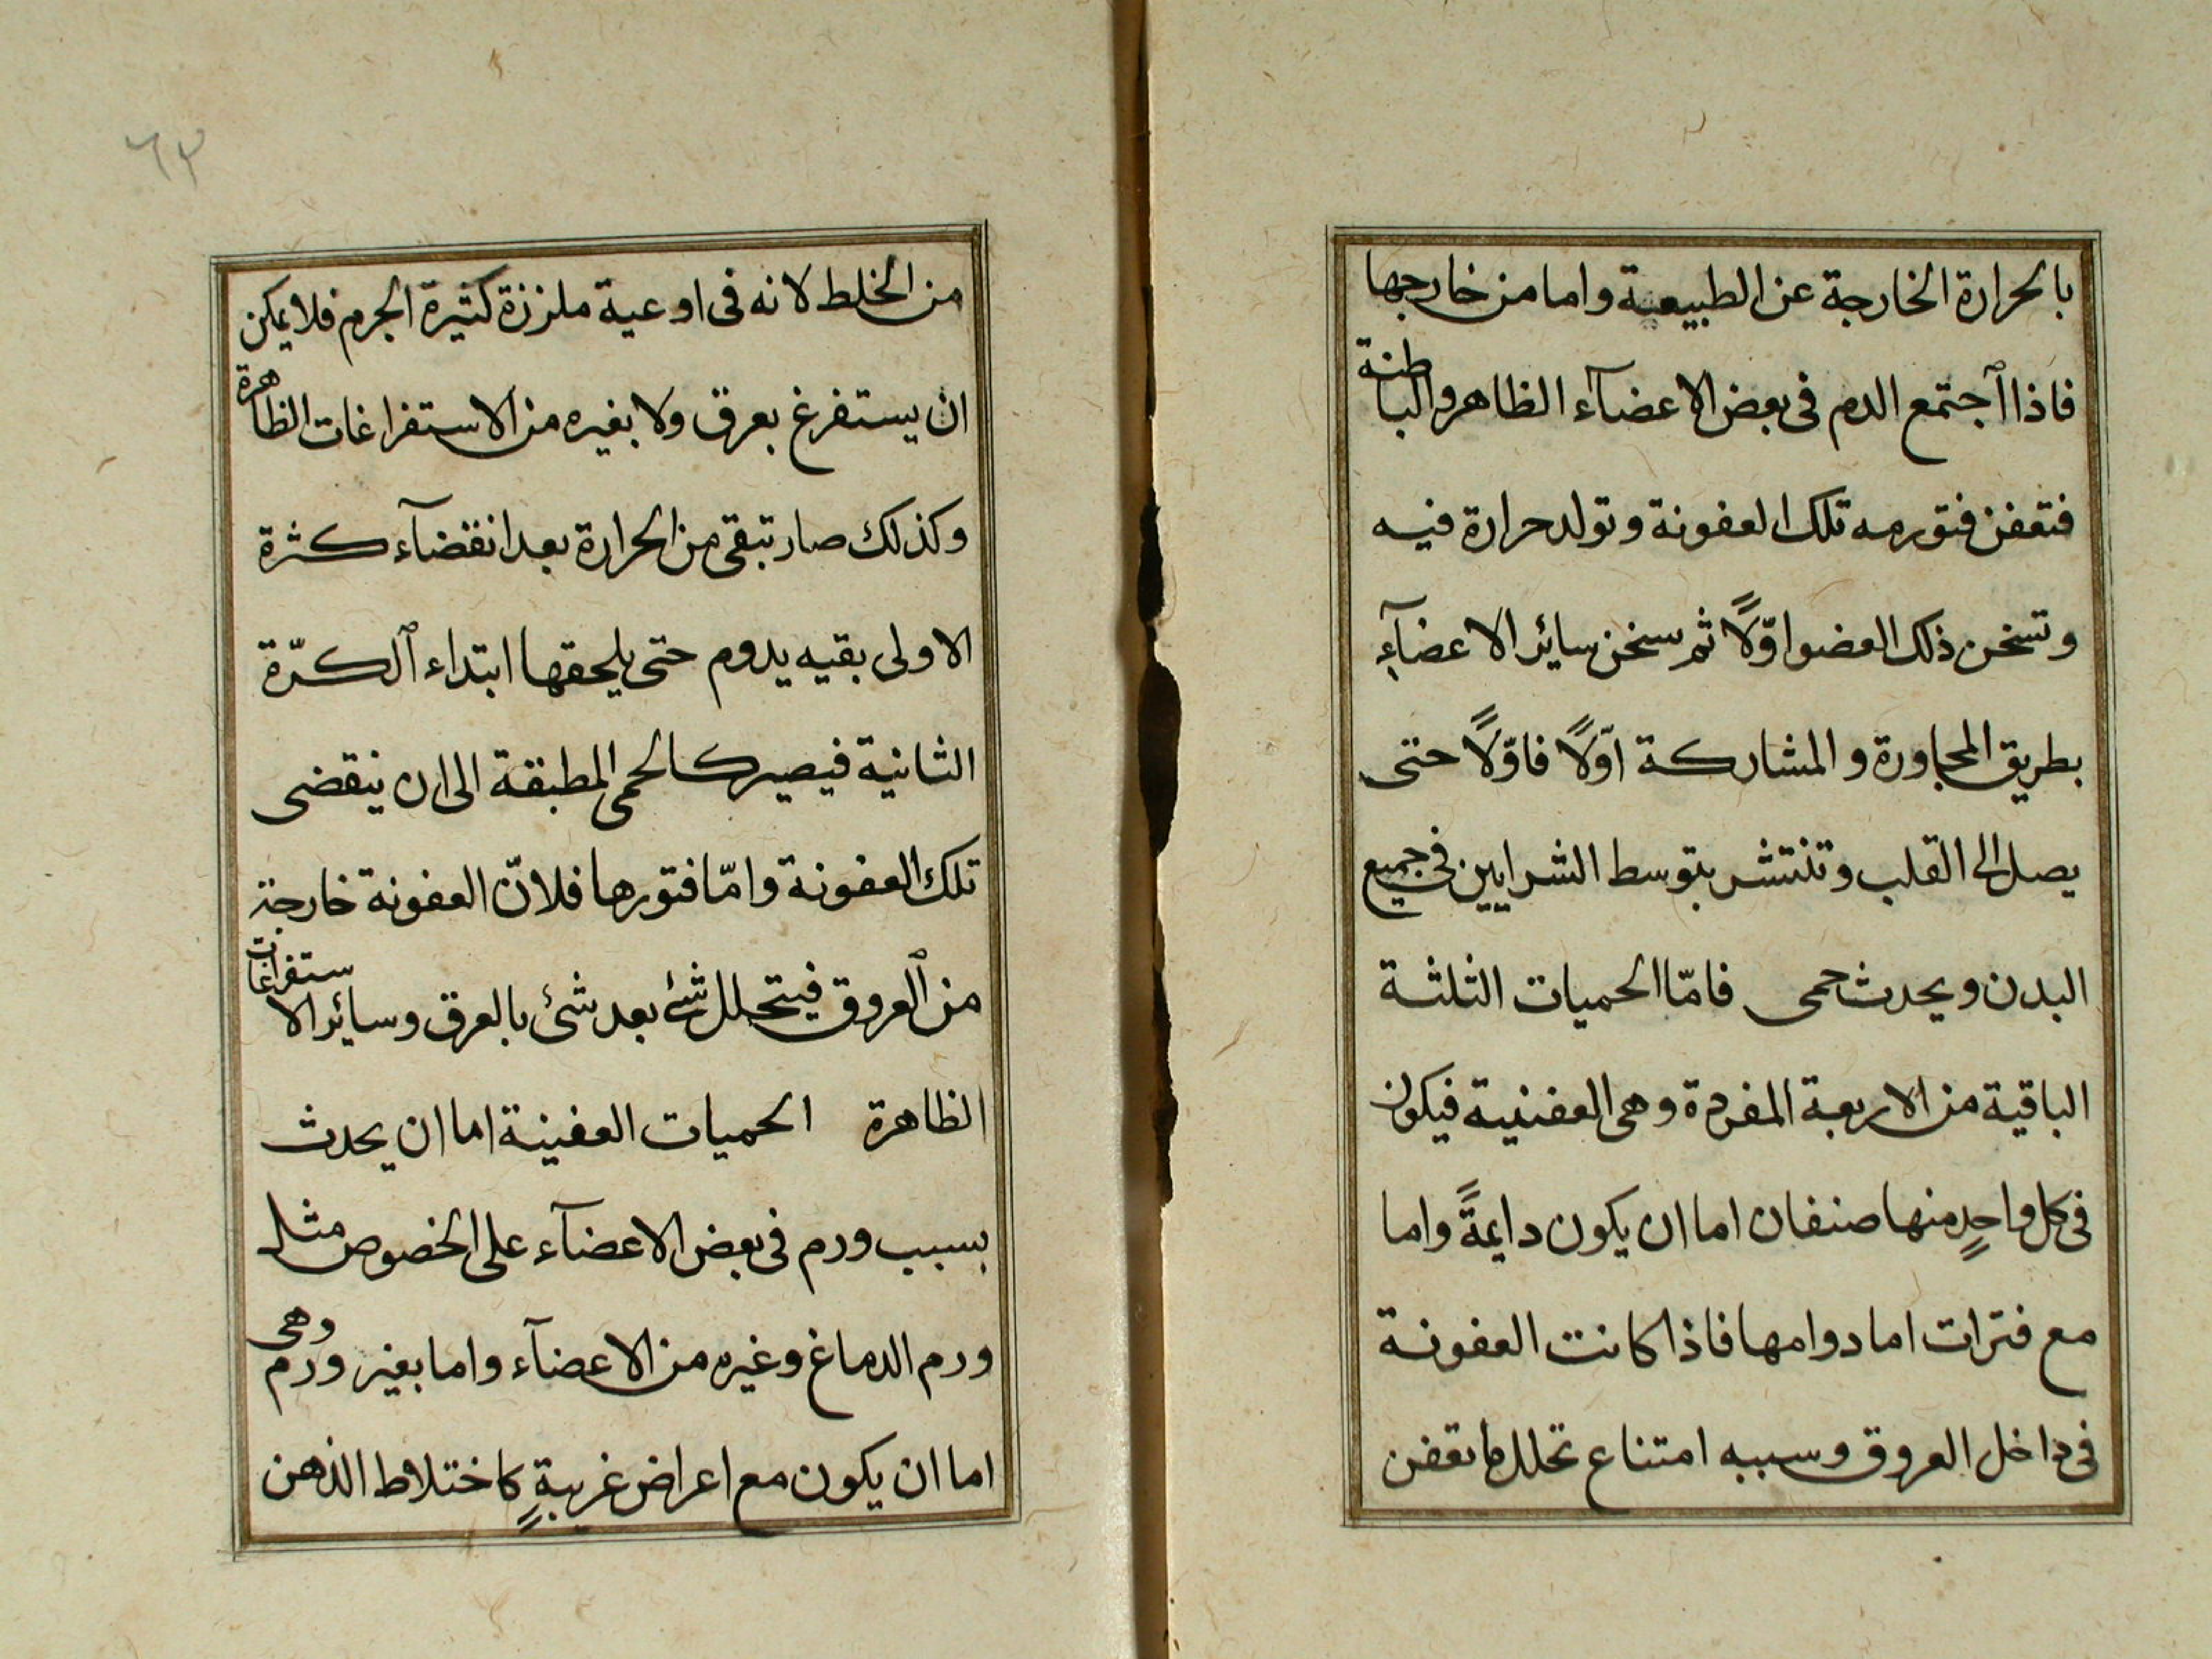 بالحرارة الخارجة عن الطبيعية واما من خارجها
فاذا ٱجتمع الدم فى بعض الاعضآء الظاهر والباطنة
فتعفن فتورمه تلك العفونة وتولد حرارة فيه
وتسخن ذلك العضو اوّلاً ثم سخن سائر الاعضآءِ
بطريق المجاورة والمشاركة اوّلاً فاوّلاً حتى
يصل الى القلب وتنتشر بتوسط الشرايين فى جميع
البدن ويحدث حمى فامّا الحميات الثلثة
الباقية من الاربعة المفردة وهى العفنية فيكون
فى كل واحدٍ منها صنفان اما ان يكون دايمةً واما
مع فترات اما دوامها فاذا كانت العفونة
فى داخل العروق وسببه امتناع تحلل ما تعفن
٦٣
من الخلط لانه فى اوعية ملززة كثيرة الجرم فلا يمكن
ان يستفرغ بعرق ولا بغيره من الاستفراغات الظاهرة
وكذلك صار تبقى من الحرارة بعد انقضآء كثرة
الاولى بقيه يدوم حتى يلحقها ابتداء ٱلكرّة
الثانية فيصير كالحمى المطبقة الى ان ينقضى
تلك العفونة وامّا فتورها فلانّ العفونة خارجة
من ٱلعروق فيتحلل شئ بعد شئ بالعرق وسائر الاستفراغات
الظاهرة الحميات العفينة اما ان يحدث
بسبب ورم فى بعض الاعضآء على الخصوص مثل
ورم الدماغ وغيره من الاعضآء واما بغير ورم وهى
اما ان يكون مع اعراض غريبةٍ كاختلاط الذهن